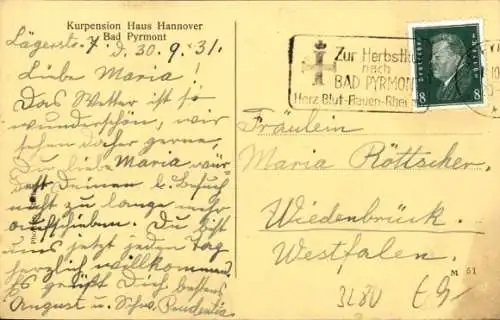 Kurpension Haus Hannover
Bad Pyrmont
Lägerstr. 7. d. 30. 9. 31.
Liebe Maria!
Das Wetter ist so
wunderschön, wir
sehen daher gerne,
Du liebe Maria wür-
dest Deinen l. Besuch
nicht zu lange mehr
aufschieben. Du bist
uns jetzt jeden Tag
herzlich willkommen.
Es grüßt Dich bestens
August u. Schw. Prudentia
Zur Herbstku
nach
BAD PYRMON
Herz-Blut-Frauen-Rhe
8 8
Fräulein
Maria Röttscher.
Wiedenbrück.
Westfalen.
M 51
3280